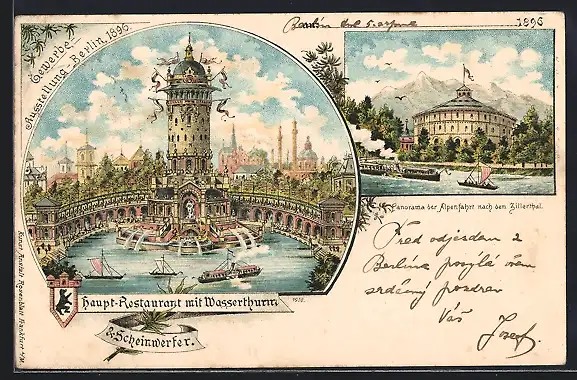 Gewerbe-
Ausstellung Berlin 1896.
Berlin
1896
Panorama der Alpenfahrt nach dem Zillerthal.
Před odjezdem z
Berlína posýlá vám
srdečný pozdrav
Váš
Josef.
Haupt-Restaurant mit Wasserthurm
& Scheinwerfer.
Kunst-Anstalt Rosenblatt Frankfurt a/M.